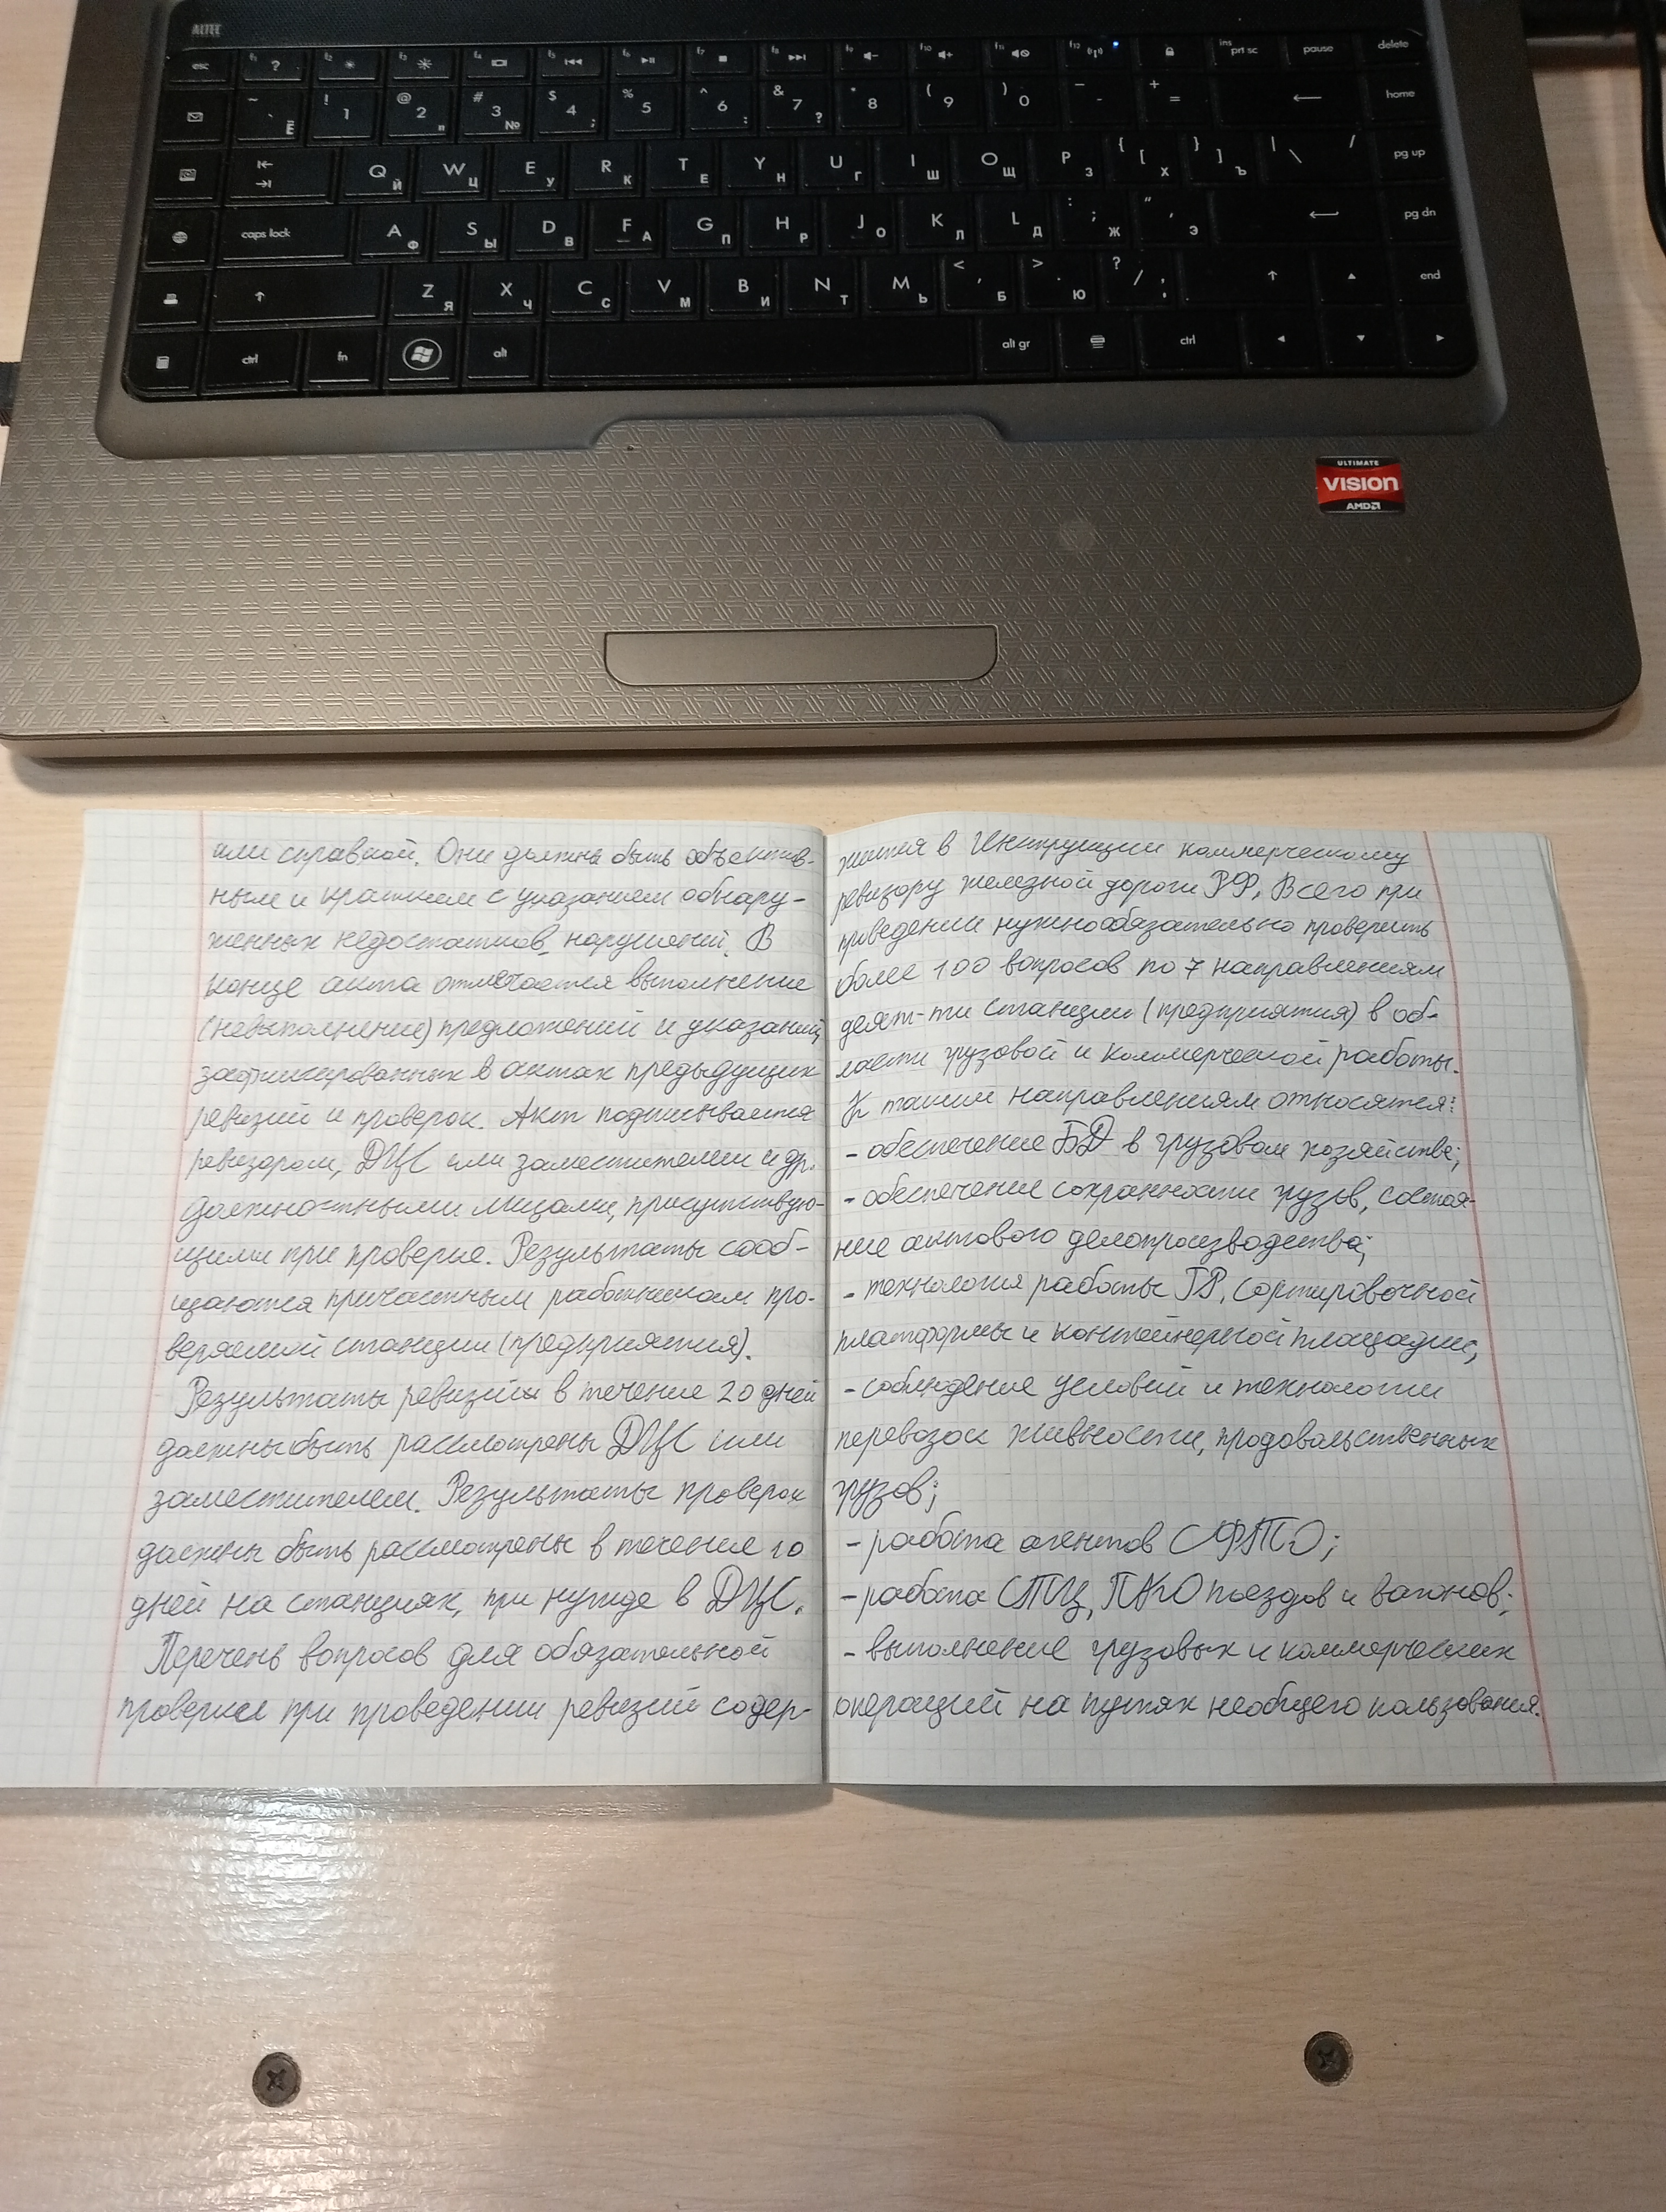 ALTEC
esc f1 ? f2 f3 f4 f5 f6 f7 f8 f9 f10 f11 f12 ins prt sc pause delete
~ ` Ё ! 1 @ 2 " # 3 № $ 4 ; % 5 ^ 6 : & 7 ? * 8 ( 9 ) 0 _ - + = home
Q Й W Ц E У R К T Е Y Н U Г I Ш O Щ P З { [ Х } ] Ъ | \ / pg up
caps lock A Ф S Ы D В F А G П H Р J О K Л L Д : ; Ж " ' Э pg dn
Z Я X Ч C С V М B И N Т M Ь < , Б > . Ю ? / , end
ctrl fn alt alt gr ctrl
ULTIMATE
VISION
AMD
или справкой. Они должны быть объектив-
ным и кратким с указанием обнару-
женных недостатков, нарушений. В
конце акта отмечается выполнение
(невыполнение) предложений и указаний,
зафиксированных в актах предыдущих
ревизий и проверок. Акт подписывается
ревизором, ДЦС или заместителем и др.
должностными лицами, присутствую-
щими при проверке. Результаты сооб-
щаются причастным работникам про-
веряемой станции (предприятия).
Результаты ревизии в течение 20 дней
должны быть рассмотрены ДЦС или
заместителем. Результаты проверок
должны быть рассмотрены в течении 10
дней на станциях, при нужде в ДЦС.
Перечень вопросов для обязательной
проверки при проведении ревизий содер-
жится в Инструкции коммерческому
ревизору железной дороги РФ. Всего при
приведении нужно обязательно проверить
более 100 вопросов по 7 направлениям
деят-ти станции (предприятия) в об-
ласти грузовой и коммерческой работы.
К таким направлениям относятся:
- обеспечение БД в грузовом хозяйстве;
- обеспечение сохранности грузов, состоя-
ние актового делопроизводства;
- технология работы ГР, сортировочной
платформы и контейнерной площадки;
- соблюдение условий и технологии
перевозок живности, продовольственных
грузов;
- работа агентов СФТО;
- работа СТЦ, ПКО поездов и вагонов;
- выполнение грузовых и коммерческих
операций на путях необщего пользования.